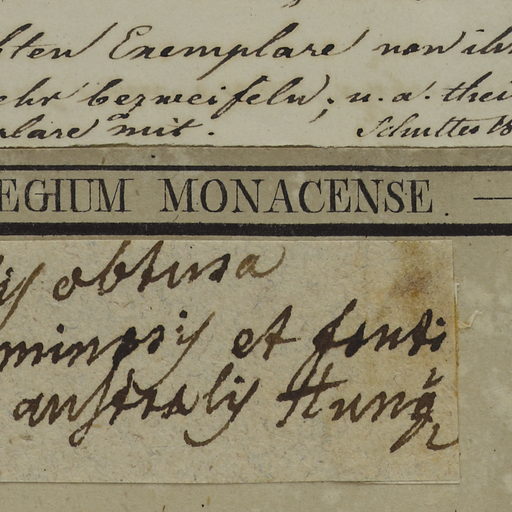 ften Exemplare von ihr
ehr bezweifeln; u. a. thei
plare mit. Schultes
EGIUM MONACENSE —
is obtusa
minosis et fonti
australis Hung